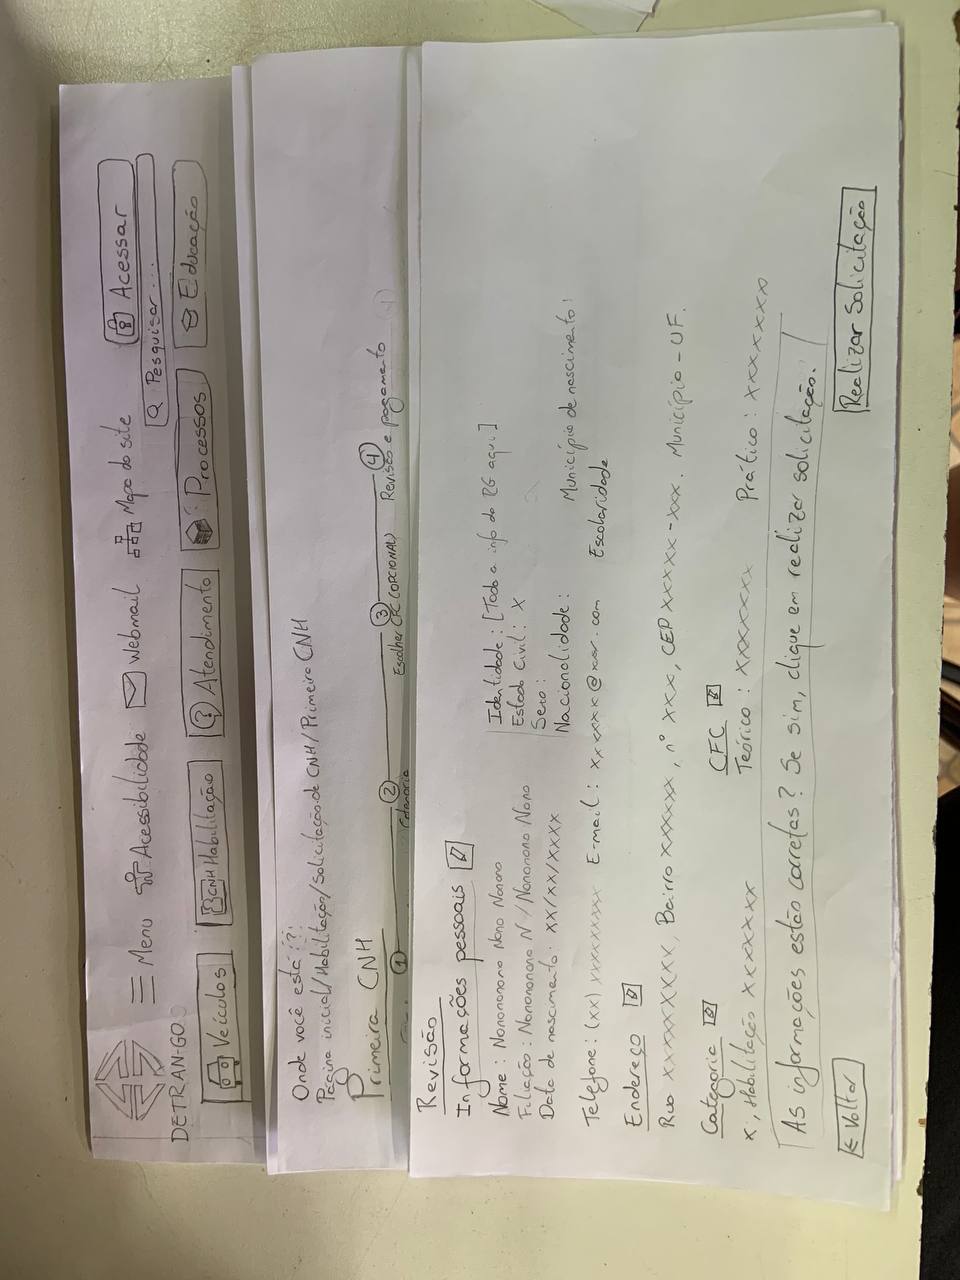 Menu Acessibilidade Webmail Mapa do site Acessar
Pesquisar...
DETRAN-GO
Veículos CNH Habilitação ? Atendimento Processos Educação
Onde você está ?
Página inicial/Habilitação/Solicitação de CNH/Primeira CNH
Primeira CNH
1 2 3 4
Categoria Escolher CFC (OPCIONAL) Revisão e pagamento
Revisão
Informações pessoais
Nome : Nonononono Nono Nonono
Identidade : [Toda a info do RG aqui]
Filiação : Nonononono N / Nononono Nono
Estado Civil : X
Data de nascimento : XX/XX/XXXX
Sexo :
Nacionalidade : Município de nascimento :
Telefone : (xx) xxxxxxxxx E-mail : xxxxxx@xxx.com Escolaridade
Endereço
Rua XXXXXXXXX, Bairro XXXXXX, nº XXX, CEP XXXXX-XXX. Município - UF.
Categoria CFC
X, Habilitação XXXXXXX Teórico : XXXXXXX Prático : XXXXXXX
As informações estão corretas? Se sim, clique em realizar solicitação.
← Voltar Realizar Solicitação